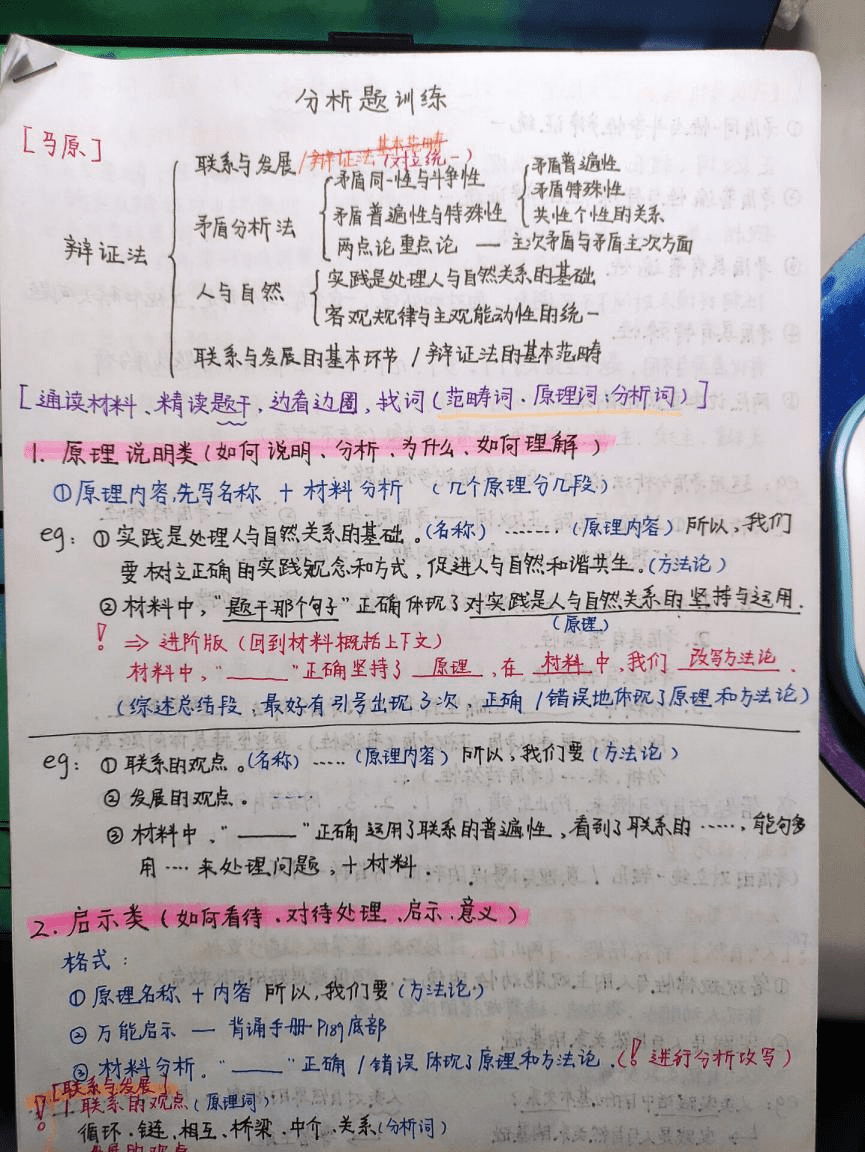 分析题训练
[马原]
辩证法
联系与发展/辩证法基本范畴(对立统一)
矛盾分析法
矛盾同一性与斗争性
矛盾普遍性与特殊性
矛盾普遍性
矛盾特殊性
共性个性的关系
两点论重点论 — 主次矛盾与矛盾主次方面
人与自然
实践是处理人与自然关系的基础
客观规律与主观能动性的统一
联系与发展的基本环节/辩证法的基本范畴
[通读材料、精读题干,边看边圈,找词(范畴词.原理词;分析词)]
1. 原理说明类(如何说明、分析、为什么、如何理解)
①原理内容,先写名称 + 材料分析 (几个原理分几段)
eg: ①实践是处理人与自然关系的基础。(名称) ……… (原理内容) 所以,我们
要树立正确的实践观念和方式,促进人与自然和谐共生。(方法论)
②材料中,"题干那个句子"正确体现了对实践是人与自然关系的坚持与运用.
(原理)
! ⇒ 进阶版(回到材料概括上下文)
材料中,"____"正确坚持了 原理 ,在 材料 中,我们 改写方法论 .
(综述总结段;最好有引号出现3次,正确/错误地体现了原理和方法论)
eg: ①联系的观点。(名称) ..... (原理内容) 所以,我们要(方法论)
②发展的观点。----
③材料中,"____"正确运用了联系的普遍性,看到了联系的……,能够多
用····来处理问题,+材料.
2. 启示类(如何看待.对待处理、启示.意义)
格式:
①原理名称 + 内容 所以,我们要(方法论)
②万能启示 — 背诵手册P189底部
③材料分析。"____"正确/错误体现了原理和方法论.(! 进行分析改写)
[联系与发展]
! 1.联系的观点(原理词):
循环.链.相互.桥梁.中介.关系(分析词)
发展的观点